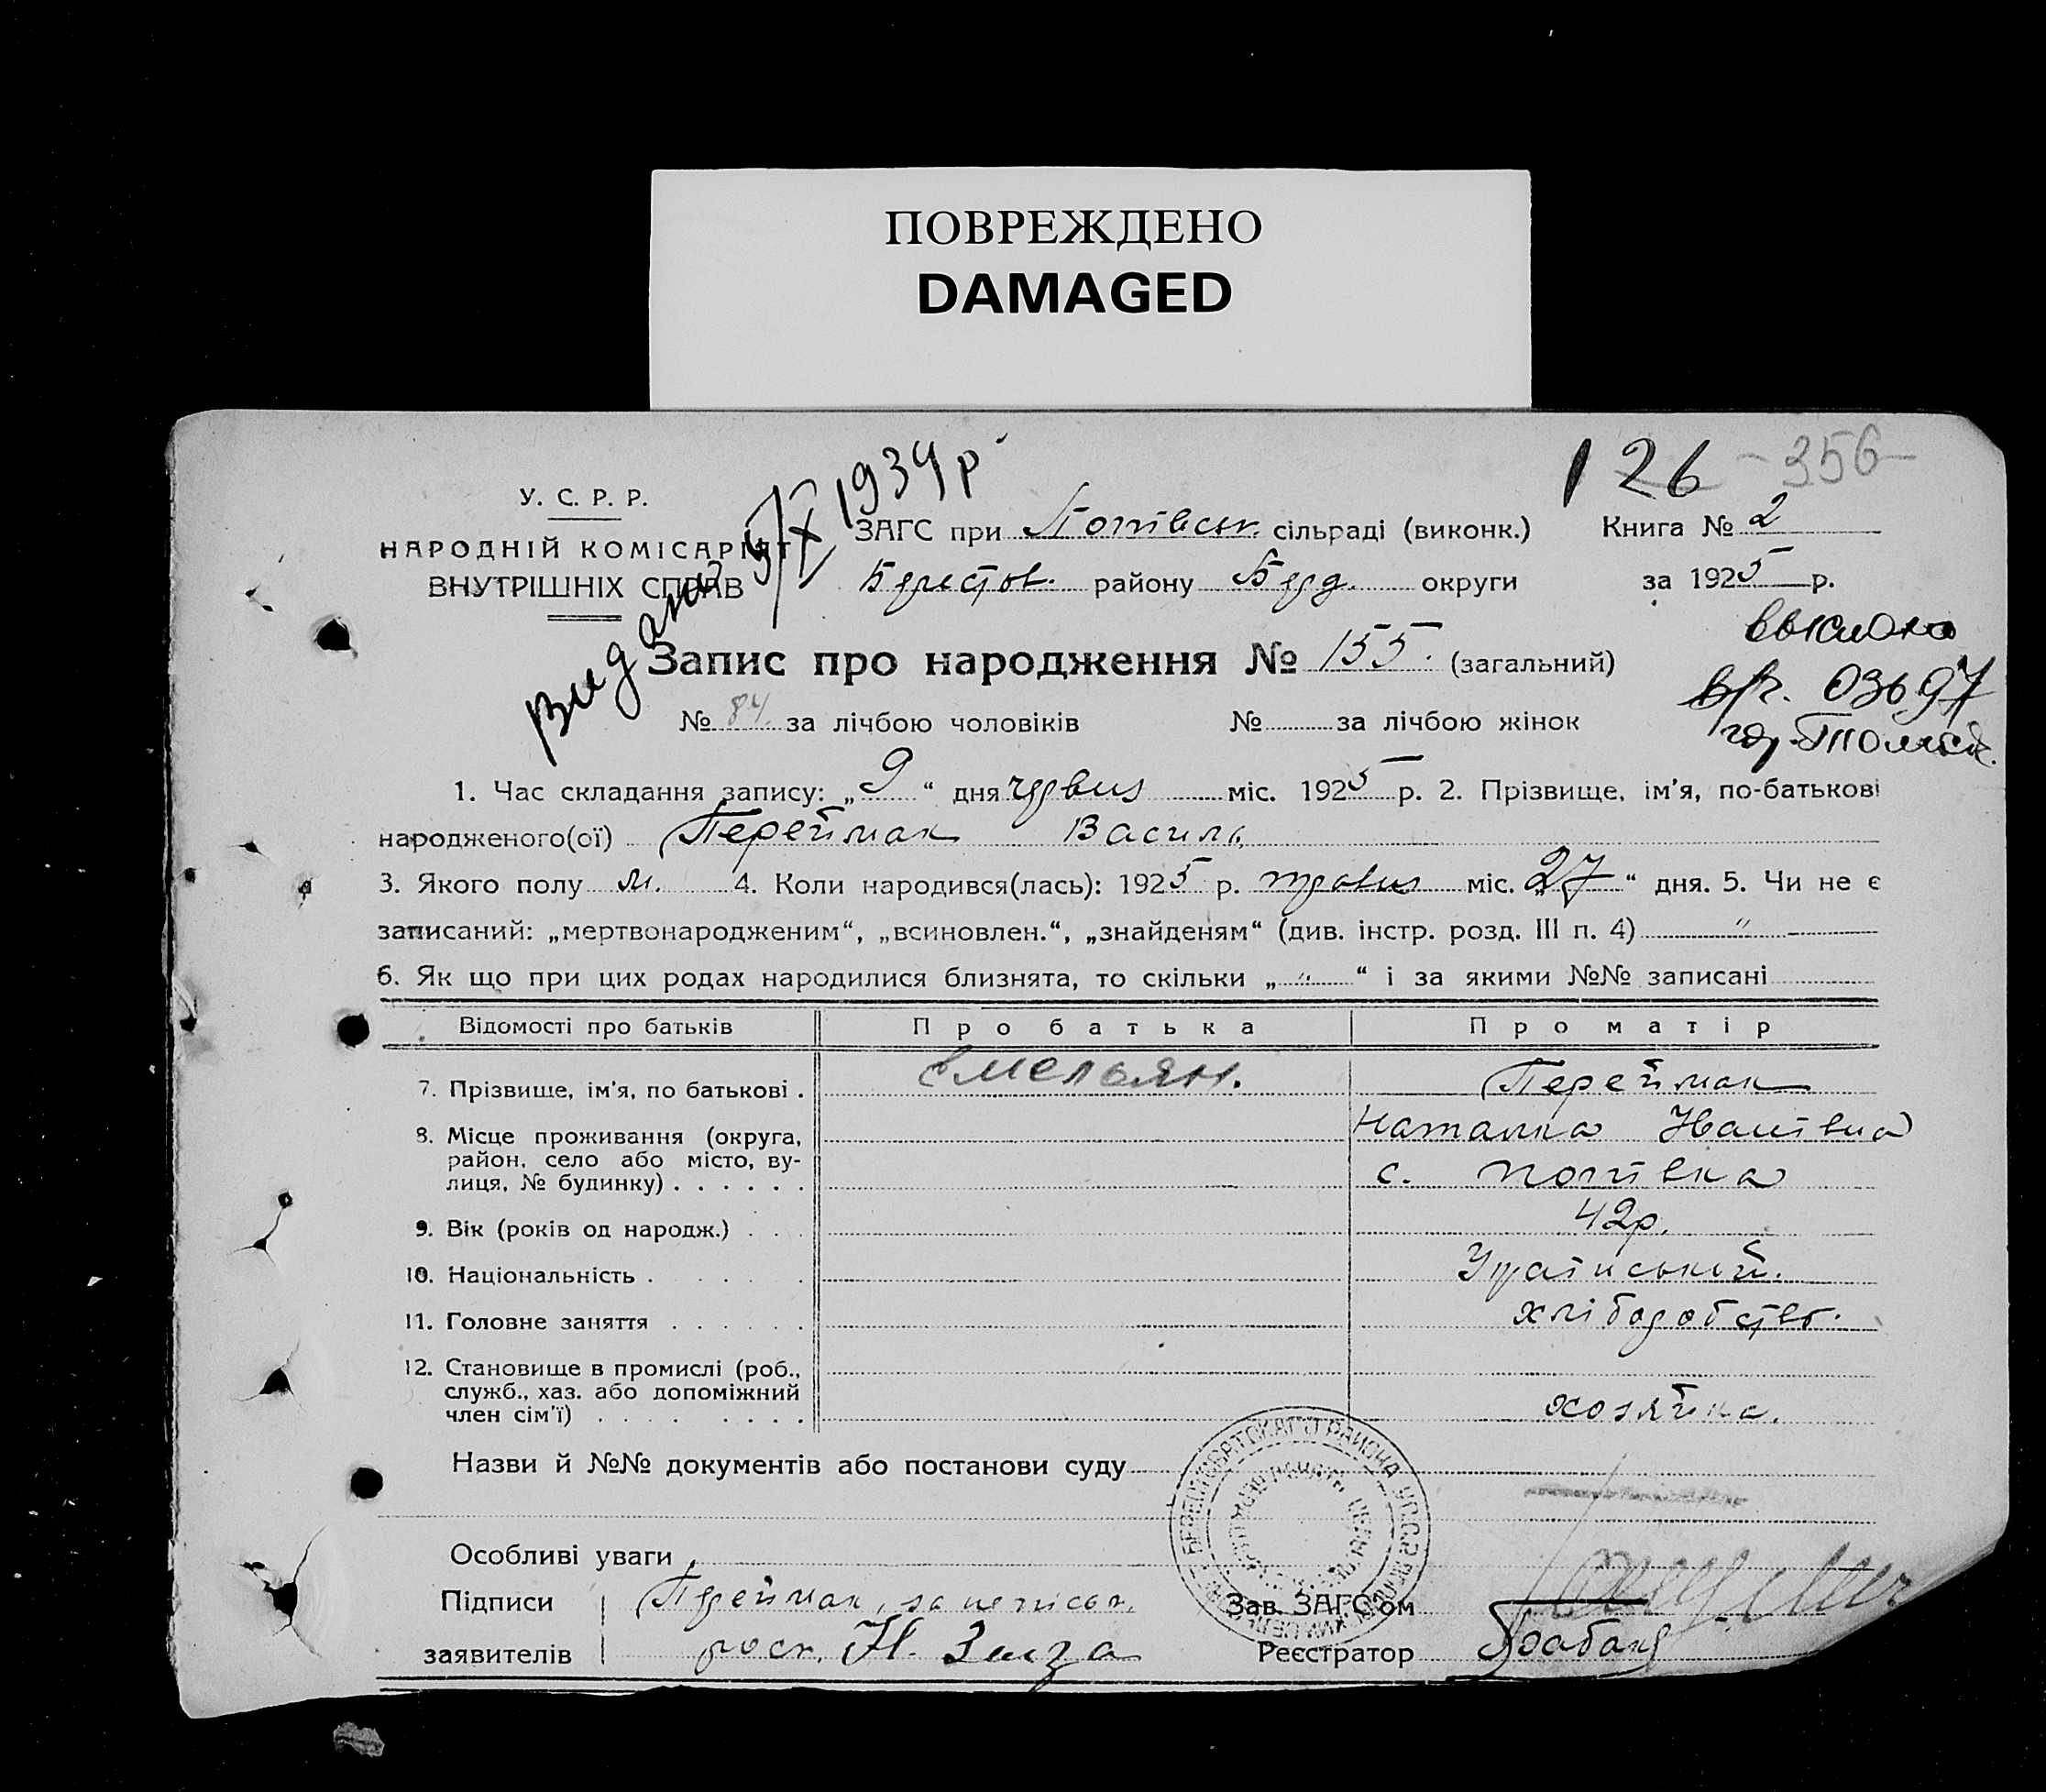 ПОВРЕЖДЕНО
DAMAGED
126 -356-
Видано 5/X 1934 р
У. С. Р. Р.
НАРОДНІЙ КОМІСАРІЯТ
ВНУТРІШНІХ СПРАВ
ЗАГС при Попівськ. сільраді (виконк.) Книга № 2
Берестов. району Берд. округи за 1925 р.
выслано
Запис про народження № 155. (загальний)
в/ч. 03697
№ 84 за лічбою чоловіків № за лічбою жінок
гор.
1. Час складання запису: „9“ дня червня міс. 1925 р. 2. Прізвище, ім'я, по-батькові
народженого(ої) Переймак Василь
3. Якого полу м. 4. Коли народився(лась): 1925 р. травня міс. „27“ дня. 5. Чи не є
записаний: „мертвонародженим“, „всиновлен.“, „знайденям“ (див. інстр. розд. III п. 4) "
6. Як що при цих родах народилися близнята, то скільки „ " “ і за якими №№ записані
Відомості про батьків Про батька Про матір
7. Прізвище, ім'я, по батькові . Емельян. Переймак
Наталка Іванівна
8. Місце проживання (округа,
район, село або місто, ву-
лиця, № будинку) . . . . . . с. Попівка
9. Вік (років од народж.) . . . 42р.
10. Національність . . . . . Українській.
11. Головне заняття . . . . . . хліборобство.
12. Становище в промислі (роб.,
служб., хаз. або допоміжний
член сім'ї) . . . . . . . . хозяйка.
Назви й №№ документів або постанови суду
Особливі уваги
Підписи Переймак, за неписьм.
заявителів роск. Н.
Зав. ЗАГС'ом
Реєстратор